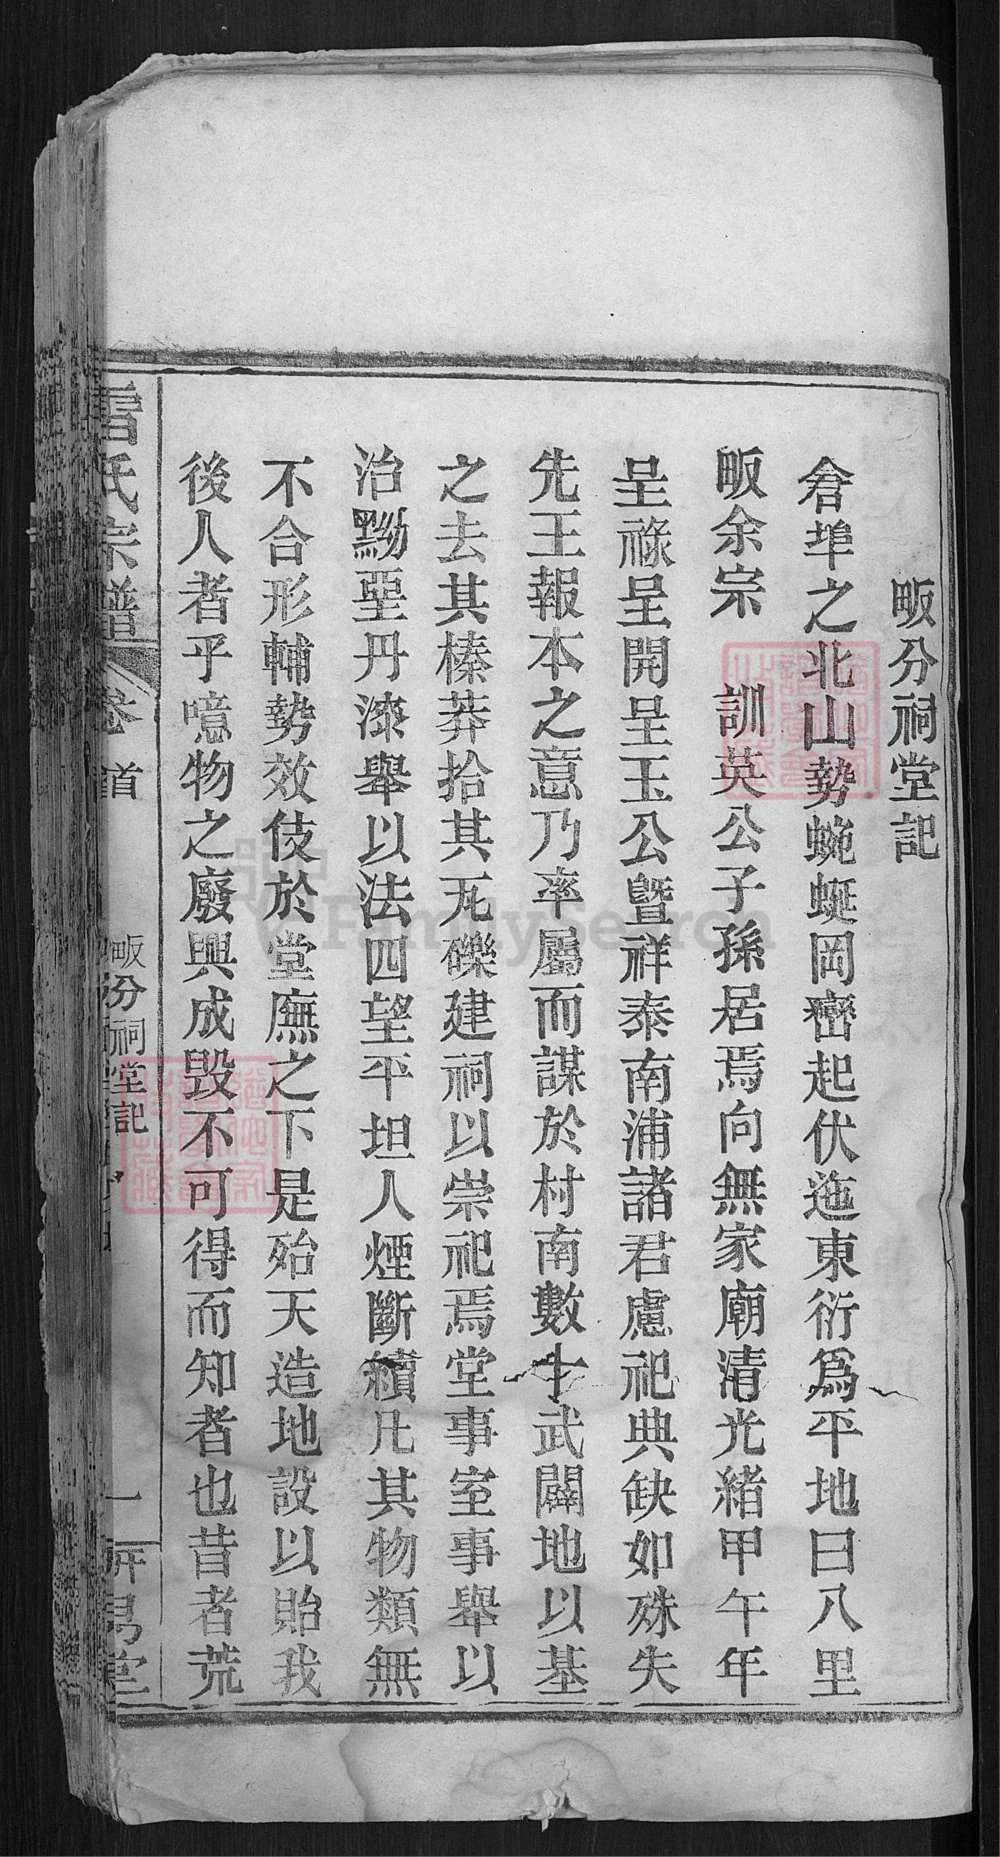 畈分祠堂記
倉埠之北山勢蜿蜒岡巒起伏迤東衍為平地曰八里
畈余宗 訓英公子孫居焉向無家廟清光緒甲午年
呈祿呈開呈玉公暨祥泰南浦諸君慮祀典缺如殊失
先王報本之意乃率屬而謀於村南數十武闢地以基
之去其榛莽拾其瓦礫建祠以崇祀焉堂事室事舉以
治黝堊丹漆舉以法四望平坦人煙斷續凡其物類無
不合形輔勢效伎於堂廡之下是殆天造地設以貽我
後人者乎噫物之廢興成毀不可得而知者也昔者荒
氏宗譜 卷首 畈分祠堂記 一 堂
FamilySearch